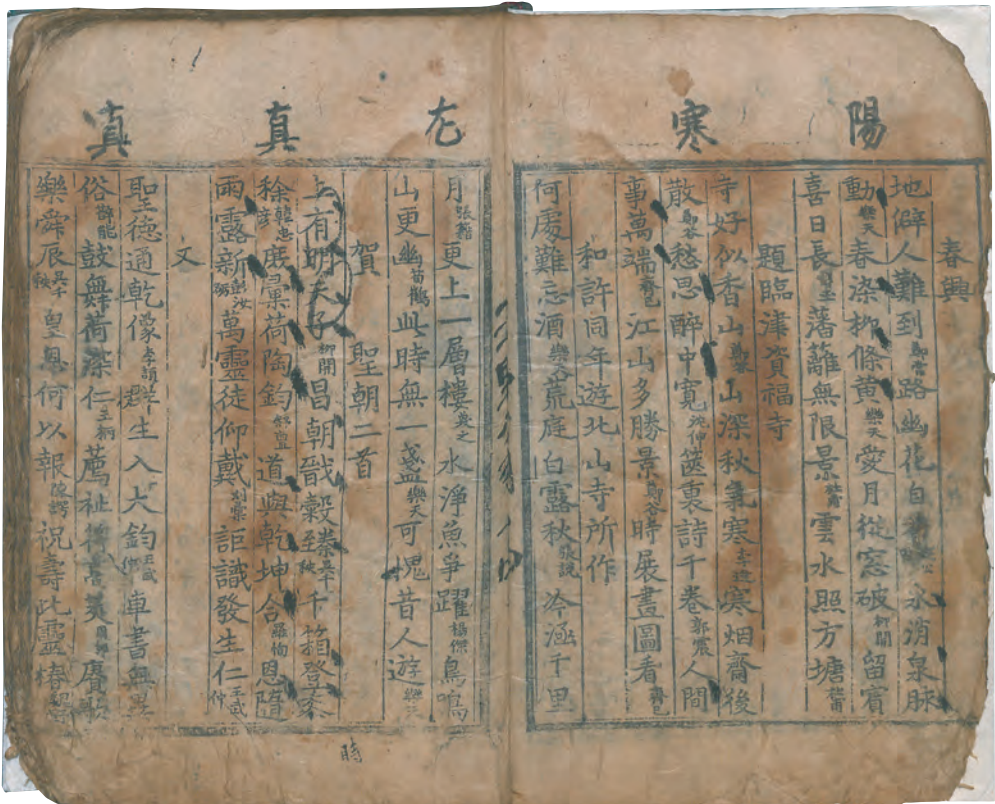 陽
寒
春興
地僻人難到 鄭常 路幽花自 氷消泉脉
動 樂天 春染柳條黃 樂天 愛月從窓破 柳開 留賓
喜日長 藩籬無限景 雲水照方塘
題臨津資福寺
寺好似香山 山深秋氣寒 李遠 寒烟齋後
散 鄭谷 愁思醉中寬 沈伸 篋裏詩千卷 郭震 人間
事萬端 齊己 江山多勝景 鄭谷 時展畫圖看 齊己
和許同年遊北山寺所作
何處難忘酒 樂天 荒庭白露秋 張説 冷涵千里
尨
真
真
月 張籍 更上一層樓 渙之 水淨魚爭躍 楊傑 鳥鳴
山更幽 荀鶴 此時無一盞 樂天 可愧昔人遊
賀 聖朝二首
上有明天子 柳開 昌朝戩穀臻 吳千至 千箱登黍
稌 韓忠彦 廣㮚荷陶鈞 舒亶 道與乾坤合 羅恂 恩隨
雨露新 彭汝礪 萬靈徒仰戴 劉 詎識發生仁 王武仲
文
聖德通乾像 李 群生入大鈞 車書無異
俗 薛能 鼓舞荷深仁 薦祉 賡歌
樂舜辰 吳千 皇恩何以報 陳 祝壽此靈椿
時